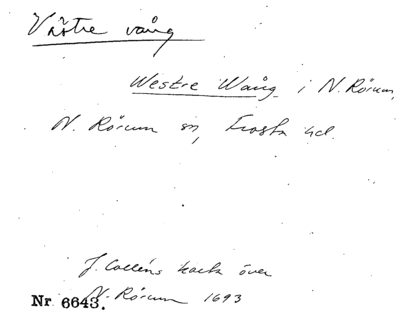 Västre vång
Westre Wång i N. Rörum,
N. Rörum sn, Frosta hd.
J. Colléns karta över
N. Rörum 1693
Nr 6643.